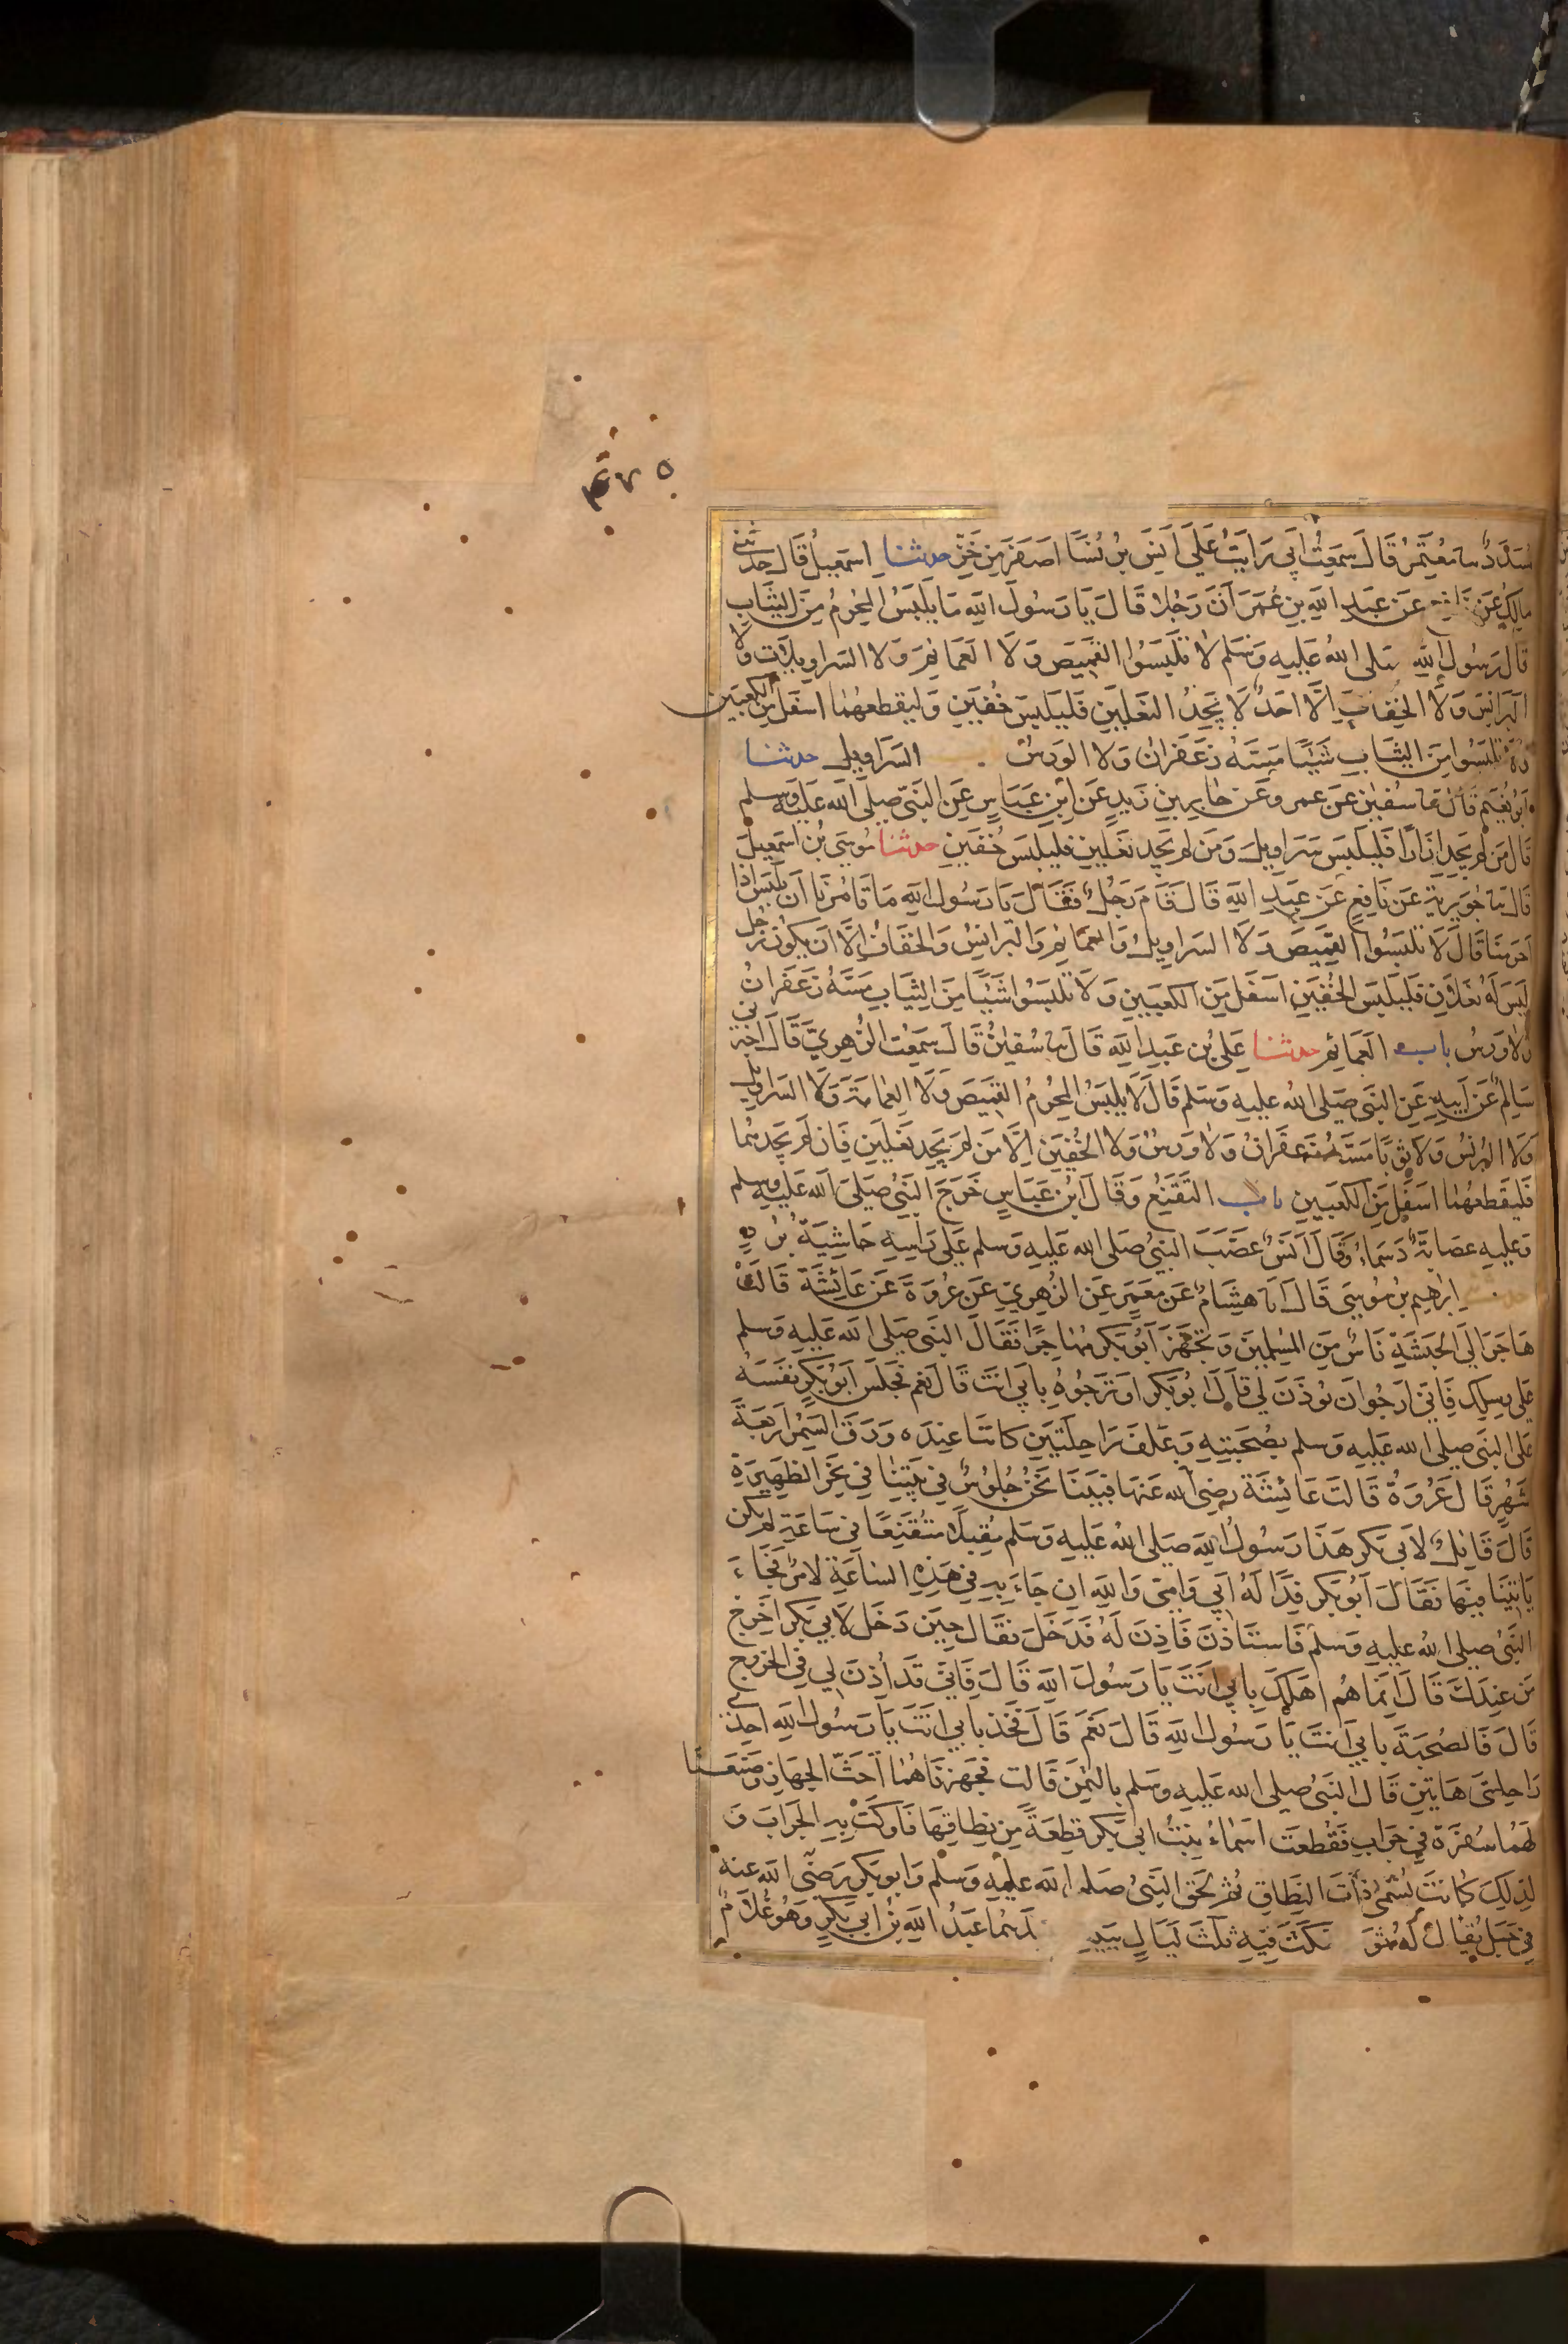 ٤٧٥
مُسَدَّدٌ نا مُعْتَمِرٌ قَالَ سَمِعْتُ اَبِي رَايْتُ عَلَى اَنَسٍ بُرْنُسًا اَصْفَرَ مِنْ خَزٍّ حدثنا اِسمعيلُ قَالَ حدثني
مالِكٌ عَنْ نافع عَنْ عَبدِ اللهِ بنِ عُمَرَ اَنَّ رَجُلا قَالَ يَا رَسُولَ اللهِ مَا يَلْبَسُ المُحْرِمُ مِنَ الثِّيَابِ
قَالَ رَسُولُ اللهِ صَلى اللهُ عَلَيهِ وَسَلم لا تَلْبَسُوا القَمِيصَ وَلَا العَمَائِمَ وَلا السَراوِيلَاتِ وَلا
البَرانِسَ وَلا الخِفَافَ اِلَّا اَحَدٌ لَا يَجِدُ النَعْلَيْنِ فَليَلبسْ خُفَّينِ وَليقطعهُمَا اسفَلَ مِنَ الكعبَين
وَلَا تَلبَسُوا مِنَ الثِّيَابِ شَيْئًا مَسَّهُ زَعفَرانُ وَلا الوَرسُ السَرَاوِيل حدثنا
اَبُو نُعَيْمٍ قَالَ نا سُفيٰنُ عَن عمر وعَن جَابِرِ بنِ زَيدٍ عَن ابنِ عَبَاسٍ عَنِ النَبيّ صلى الله عَلَيه وسلم
قَالَ مَن لم يَجِد اِزَارًا فَليَلبَس سَرَاوِيلَ وَمَن لم يَجِد نَعلَينِ فَليَلبَس خُفَّينِ حدثنا مُوسَى بنُ اسمعِيلَ
قَالَ نا جُوَيرِيَةُ عَن نَافِعٍ عَن عَبدِ اللهِ قَالَ قَامَ رَجُلٌ فَقَالَ يَا رَسُولَ اللهِ مَا تَامُرُنَا اَن نَلبَسَ اِذَا
اَحرَمنَا قَالَ لَا تَلبَسُوا القَمِيصَ وَلَا السَراوِيلَ وَالعَمَائِمَ وَالبَرانِسَ وَالخِفَافَ اِلَّا اَن يَكُونَ رَجُل
لَيسَ لَهُ نَعلَانِ فَليَلبَس الخُفَّينِ اسفَلَ مِنَ الكَعبَينِ وَلَا تَلبَسُوا شَيْئًا مِنَ الثِّيَابِ مَسَّهُ زَعفَرانُ
وَلا وَرسُ باب العَمَائِم حدثنا عَلِيُّ بنُ عَبدِ اللهِ قَالَ نا سُفيٰنُ قَالَ سَمِعتُ الزُّهرِيَّ قَالَ اخبَرَنِي
سَالِمٌ عَن اَبِيهِ عَنِ النَبي صَلى اللهُ عليهِ وَسَلم قَالَ لَا يَلبَسُ المُحرِمُ القَمِيصَ وَلَا العِمَامَةَ وَلَا السَرَاوِيلَ
وَلا البُرنُسَ وَلا ثَوبًا مَسَّهُ زَعفَرانُ وَلا وَرسٌ وَلا الخُفَّينِ اِلَّا مَن لَم يَجِد نَعلَينِ فَاِن لَم يَجِدهُمَا
فَليَقطَعهُمَا اسفَلَ مِنَ الكَعبَينِ باب التَّقَنُّعِ وَقَالَ ابنُ عَبَاسٍ خَرَجَ النَبيُّ صَلَى الله عَلَيهِ وسلم
وَعَلَيهِ عِصَابَةٌ دَسمَاءُ وَقَالَ اَنَسٌ عَصَّبَ النَبيُّ صَلى الله عَليهِ وَسلم عَلَى رَاسِهِ حَاشِيَةَ بُردٍ
حدثنا اِبرٰهِيم بنُ مُوسَى قَالَ انا هِشَامٌ عَن مَعمَرٍ عَنِ الزُهرِيِّ عَن عُروَةَ عَن عَائِشَةَ قَالَت
هَاجَرَ اِلَى الحَبَشَةِ نَاسٌ مِنَ المُسلِمِينَ وَتَجَهَّزَ اَبُو بَكرٍ مُهَاجِرًا فَقَالَ النَبي صَلى الله عَليهِ وَسلم
عَلى رِسلِكَ فَاِنِّي اَرجُو اَن يُوذَنَ لِي قَالَ اَبُو بَكرٍ اَوَتَرجُوهُ بِاَبِي اَنتَ قَالَ نَعَم فَحَبَسَ اَبُو بَكرٍ نَفسَهُ
عَلَى النَبي صلى الله عَليهِ وَسلم لِصُحبَتِهِ وَعَلَفَ رَاحِلَتَينِ كَانَتَا عِندَه وَرَقَ السَّمُرِ اَربَعَةَ
اَشهُرٍ قَالَ عُروَةُ قَالَت عَائِشَةُ رضي الله عَنهَا فَبَينَا نَحنُ جُلُوسٌ فِي بَيتِنَا فِي نَحرِ الظَهِيرَةِ
قَالَ قَائِلٌ لِاَبِي بَكرٍ هَذَا رَسُولُ اللهِ صَلى اللهُ عَليهِ وَسَلم مُقبِلًا مُتَقَنِّعًا فِي سَاعَةٍ لَم يَكُن
يَاتِينَا فِيهَا فَقَالَ اَبُو بَكرٍ فِدًا لَهُ اَبِي وَاُمِّي وَاللهِ اِن جَاءَ بِهِ فِي هَذِهِ السَاعَةِ لَامرٌ فَجَاءَ
النَبيُّ صلى اللهُ عَليهِ وَسَلم فَاستَاذَنَ فَاذِنَ لَهُ فَدَخَلَ فَقَالَ حِينَ دَخَلَ لِاَبِي بَكرٍ اَخرِج
مَن عِندَكَ قَالَ اِنَّمَا هُم اَهلُكَ بِاَبِي اَنتَ يَا رَسُولَ اللهِ قَالَ فَاِنِّي قَد اُذِنَ لِي فِي الخُرُوجِ
قَالَ فَالصُحبَةَ بِاَبِي اَنتَ يَا رَسُولَ اللهِ قَالَ نَعَم قَالَ فَخُذ بِاَبِي اَنتَ يَا رَسُولَ اللهِ اِحدَى
رَاحِلَتَيَّ هَاتَينِ قَالَ النَبيُّ صلى الله عَليهِ وسَلم بِالثَمَنِ قَالَت فَجَهَّزنَاهُمَا اَحَثَّ الجِهَازِ وَصَنَعنَا
لَهُمَا سُفرَةً فِي جِرَابٍ فَقَطَعَت اَسمَاءُ بِنتُ اَبِي بَكرٍ قِطعَةً مِن نِطَاقِهَا فَاَوكَت بِهِ الجِرَابَ وَ
لِذَلِكَ كَانَت تُسَمَّى ذَاتَ النِّطَاقِ ثُم لَحِقَ النَبيُّ صلى الله عليه وَسلم وَابو بَكرٍ رَضي الله عنه
فِي جَبَلٍ يُقَالُ لَهُ ثَور مَكَثَ فِيهِ ثَلٰثَ لَيَالٍ يَبِيتُ عَبدُ اللهِ بنُ اَبِي بَكرٍ وَهُوَ غُلَامٌ